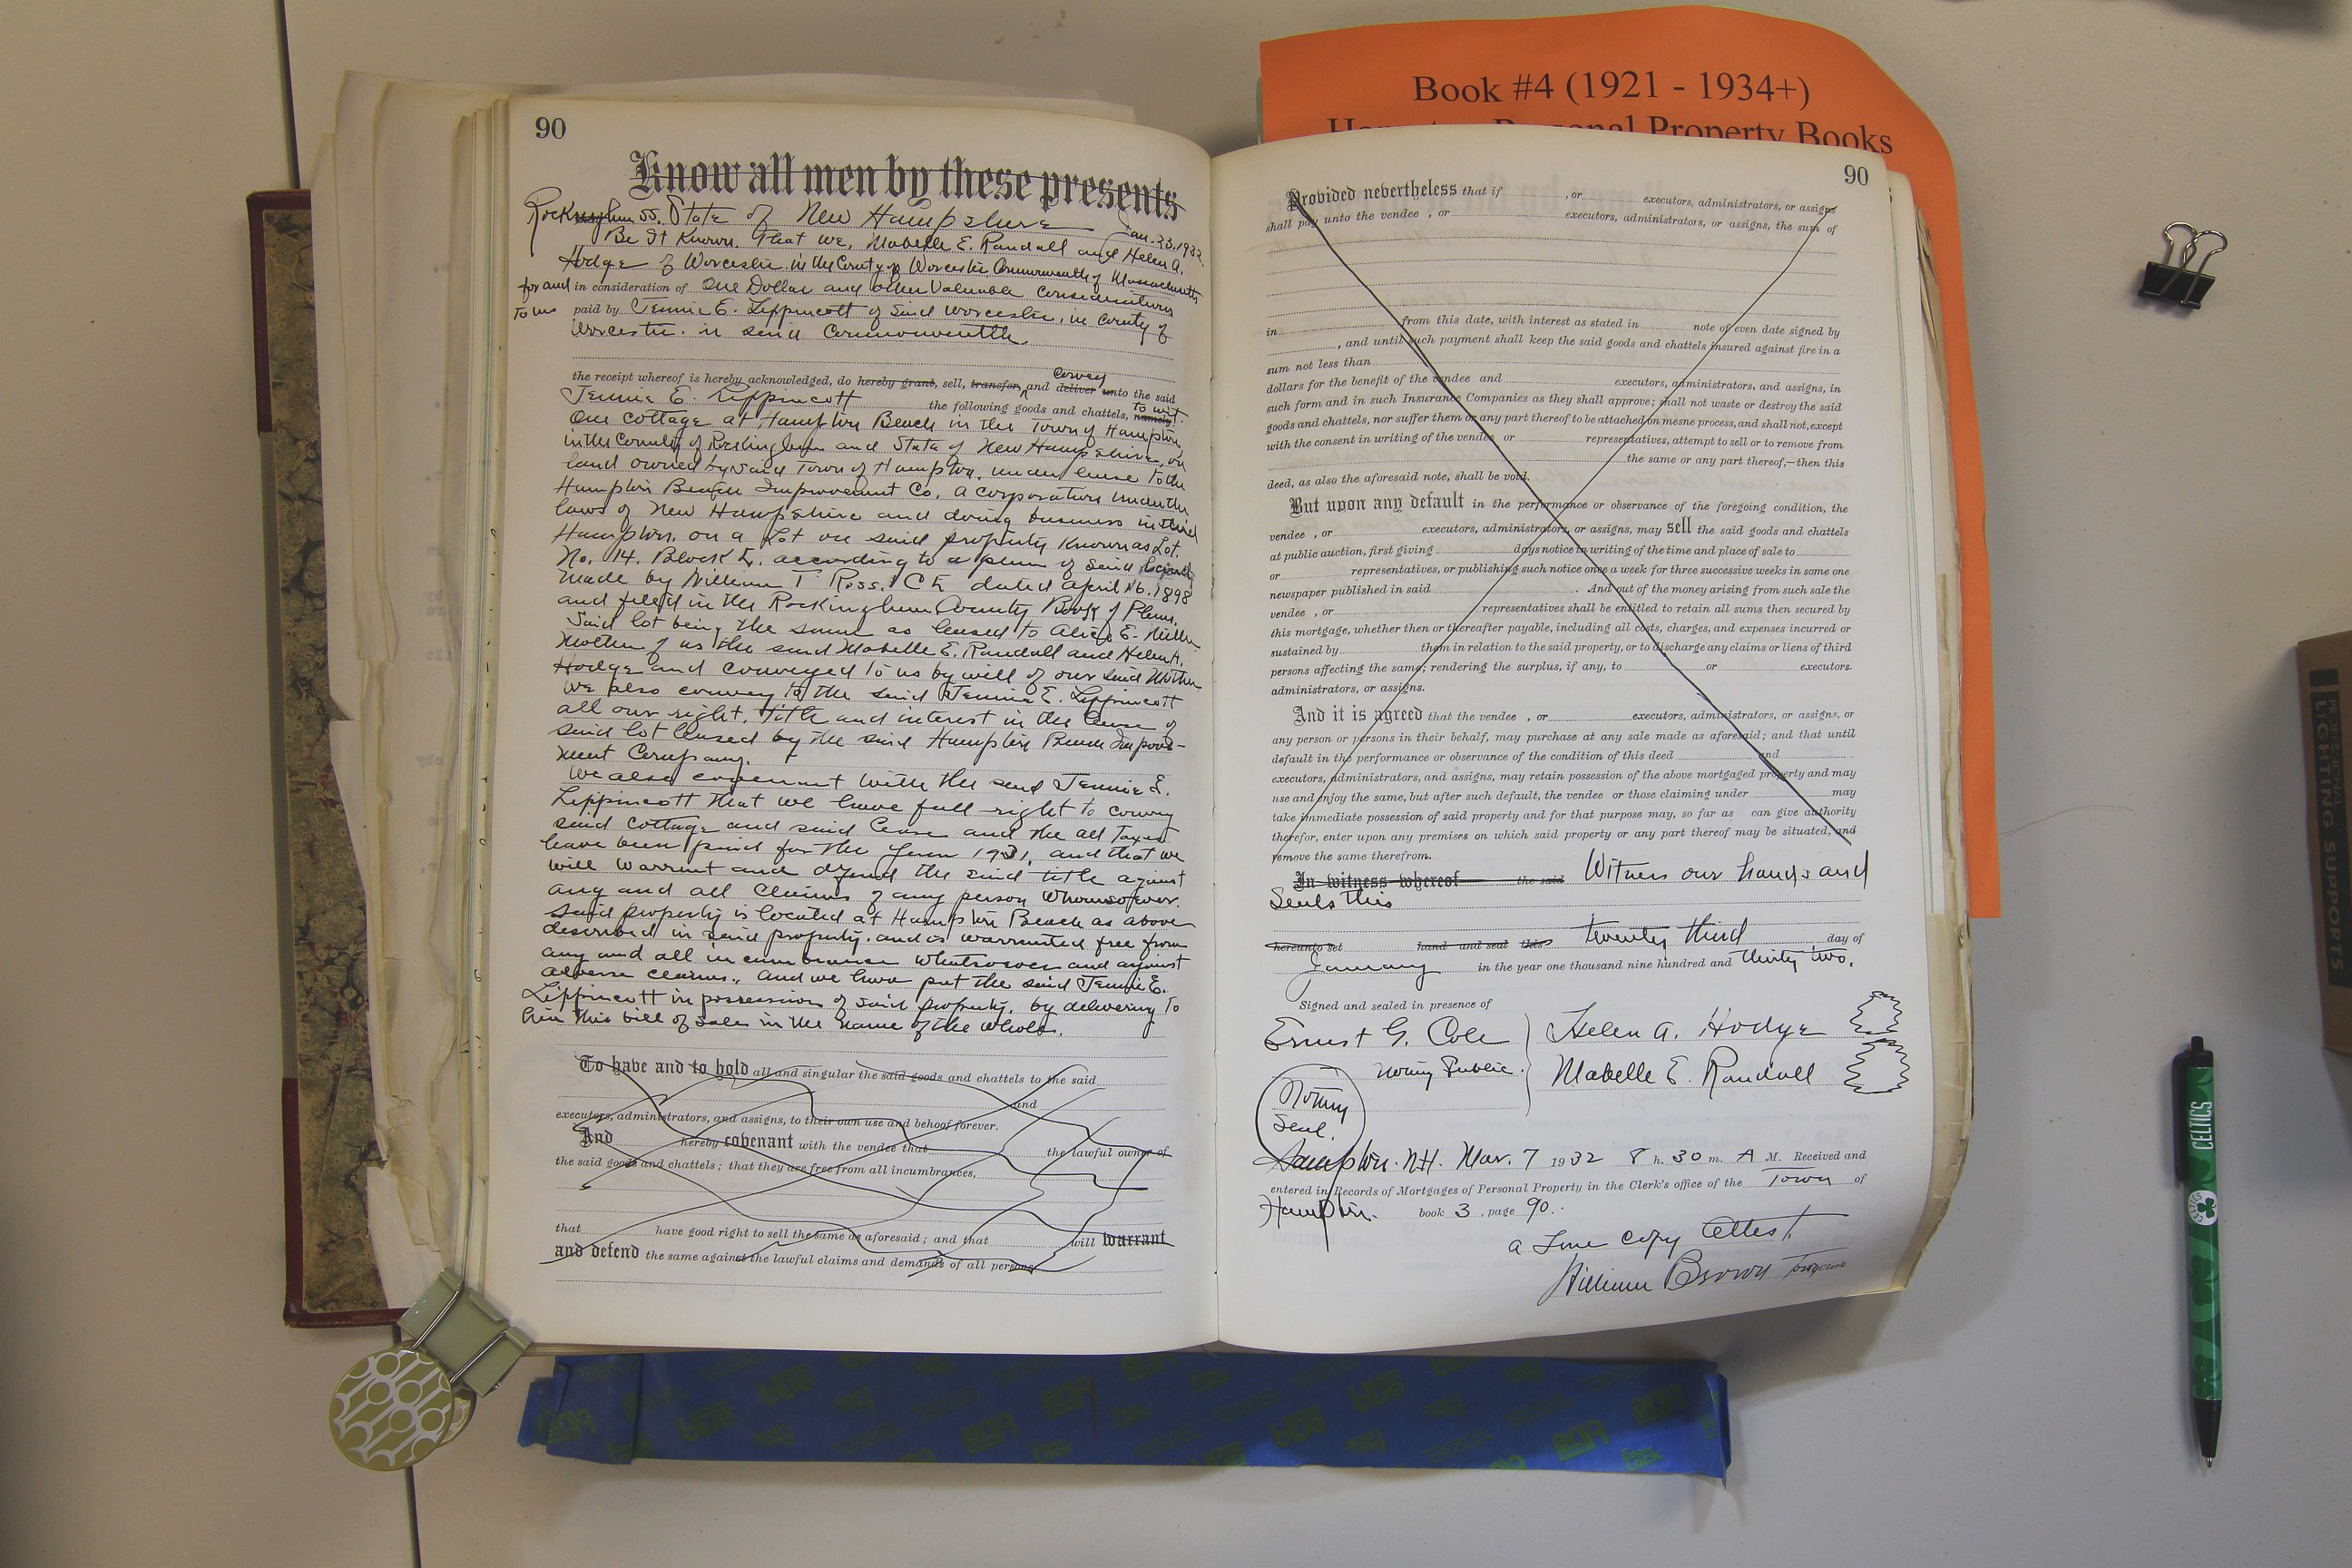 Book #4 (1921 - 1934+)
Personal Property Books
90
Know all men by these presents
Rockingham ss. State of New Hampshire Jan. 23, 1932.
Be It Known. That we, Mabelle E. Randall and Helen A.
Hodge of Worcester in the County of Worcester Commonwealth of Massachusetts
for and in consideration of One Dollar and other Valuable Considerations
to us paid by Jennie E. Lippincott of said Worcester, in County of
Worcester in said Commonwealth.
the receipt whereof is hereby acknowledged, do hereby grant, sell, transfer, and convey deliver unto the said
Jennie E. Lippincott the following goods and chattels, to wit namely:
One cottage at Hampton Beach in the Town of Hampton,
in the County of Rockingham and State of New Hampshire, on
land owned by said Town of Hampton, under lease to the
Hampton Beach Improvement Co. a corporation under the
laws of New Hampshire and doing business in said
Hampton, on a Lot on said property Known as Lot.
No. 14. Block L. according to a plan of said
made by William T Ross. C E dated April 16, 1898
and filed in the Rockingham County Book of Plans.
Said lot being the same as leased to Alice E.
Mother of us the said Mabelle E. Randall and Helen A.
Hodge and conveyed to us by will of our said Mother
We also convey to the said Jennie E. Lippincott
all our right, title and interest in the lease of
said lot leased by the said Hampton Beach Improve-
ment Company.
We also covenant with the said Jennie E.
Lippincott that we have full right to convey
said cottage and said lease and the all Taxes
have been paid for the year 1931, and that we
will warrant and defend the said title against
any and all claims of any person whomsoever.
Said property is located at Hampton Beach as above
described in said property. and is warranted free from
any and all incumbrance whatsoever and against
adverse claims., and we have put the said Jennie E.
Lippincott in possession of said property, by delivering to
him this bill of sale in the name of the whole.
To have and to hold all and singular the said goods and chattels to the said
and
executors, administrators, and assigns, to their own use and behoof forever.
And hereby covenant with the vendee that the lawful owner of
the said goods and chattels; that they are free from all incumbrances,
that have good right to sell the same as aforesaid; and that will warrant
and defend the same against the lawful claims and demands of all persons
90
Provided nevertheless that if , or executors, administrators, or assigns
shall pay unto the vendee , or executors, administrators, or assigns, the sum of
in from this date, with interest as stated in note of even date signed by
, and until such payment shall keep the said goods and chattels insured against fire in a
sum not less than
dollars for the benefit of the vendee and executors, administrators, and assigns, in
such form and in such Insurance Companies as they shall approve; shall not waste or destroy the said
goods and chattels, nor suffer them or any part thereof to be attached on mesne process, and shall not, except
with the consent in writing of the vendee or representatives, attempt to sell or to remove from
the same or any part thereof,—then this
deed, as also the aforesaid note, shall be void.
But upon any default in the performance or observance of the foregoing condition, the
vendee , or executors, administrators, or assigns, may sell the said goods and chattels
at public auction, first giving days notice in writing of the time and place of sale to
or representatives, or publishing such notice once a week for three successive weeks in some one
newspaper published in said . And out of the money arising from such sale the
vendee , or representatives shall be entitled to retain all sums then secured by
this mortgage, whether then or thereafter payable, including all costs, charges, and expenses incurred or
sustained by them in relation to the said property, or to discharge any claims or liens of third
persons affecting the same; rendering the surplus, if any, to or executors.
administrators, or assigns.
And it is agreed that the vendee , or executors, administrators, or assigns, or
any person or persons in their behalf, may purchase at any sale made as aforesaid; and that until
default in the performance or observance of the condition of this deed and
executors, administrators, and assigns, may retain possession of the above mortgaged property and may
use and enjoy the same, but after such default, the vendee or those claiming under may
take immediate possession of said property and for that purpose may, so far as can give authority
therefor, enter upon any premises on which said property or any part thereof may be situated, and
remove the same therefrom.
In witness whereof the said Witness our hands and
Seals this
hereunto set hand and seal this twenty third day of
January in the year one thousand nine hundred and thirty two.
Signed and sealed in presence of
Ernest G. Cole Helen A. Hodge
Notary Public. Mabelle E. Randall
Notary
Seal.
Hampton. N.H. Mar. 7 1932 8 h. 30 m. A M. Received and
entered in Records of Mortgages of Personal Property in the Clerk's office of the Town of
Hampton. book 3 , page 90.
a True Copy Attest,
William Brown Town Clerk
CELTICS
CELTICS
PROFESSIONAL
LIGHTING SUPPORTS